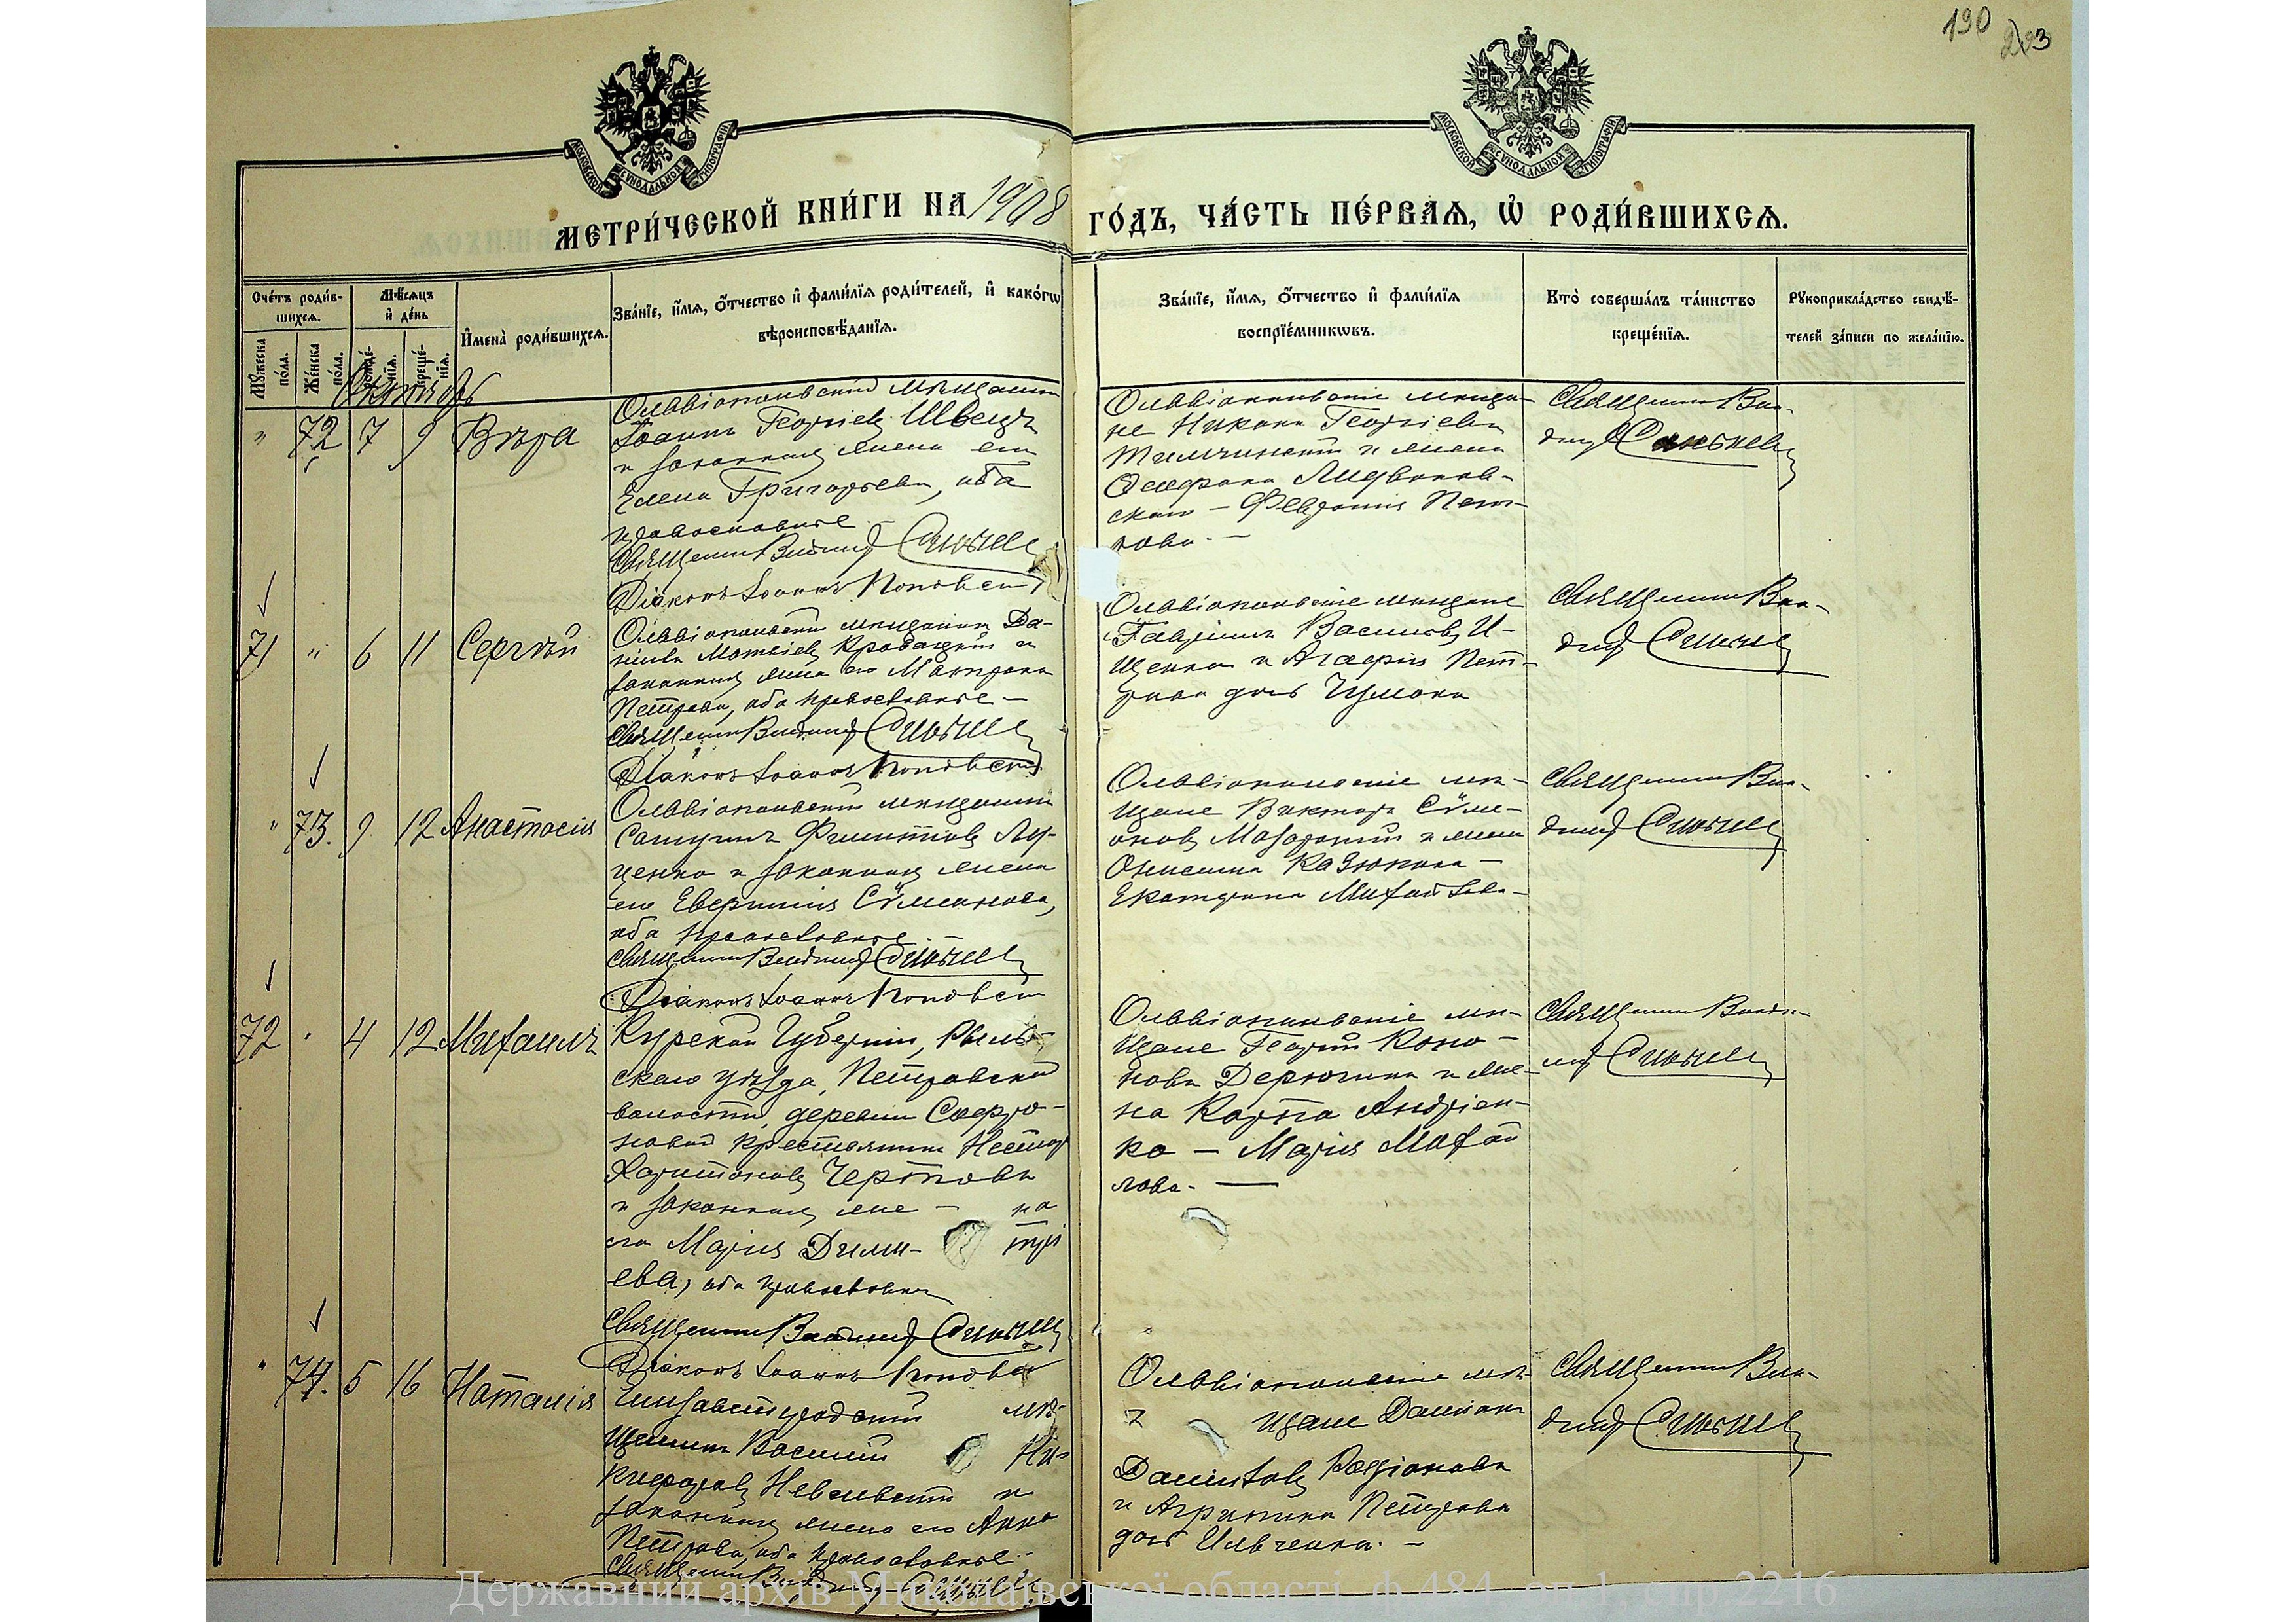 190
223
МОСКОВСКОЙ СѴНОДАЛЬНОЙ ТИПОГРАФІИ
МОСКОВСКОЙ СѴНОДАЛЬНОЙ ТИПОГРАФІИ
МЕТРИ́ЧЕСКОЙ КНИ́ГИ НА 1908
ГО́ДЪ, ЧА́СТЬ ПЕ́РВАЯ, Ѽ РОДИ́ВШИХСЯ.
Сче́тъ роди́в-
шихся.
Мѣ́сяцъ
и҆ де́нь
Мꙋ́жеска
по́ла.
Же́нска
по́ла.
рожде́-
нїя.
креще́-
нїя.
И҆мена̀ роди́вшихся.
Зва́нїе, и҆́мя, ѻ҆́тчество и҆ фами́лїя роди́телей, и҆ како́гѡ
вѣроисповѣ́данїя.
Зва́нїе, и҆́мя, ѻ҆́тчество и҆ фами́лїя
воспрїе́мникѡвъ.
Кто̀ соверша́лъ та́инство
креще́нїя.
Рꙋкоприкла́дство свидѣ́-
телей за́писи по жела́нїю.
Октябрь
" 72 7 9 Вѣра
Ольвіопольскій мѣщанинъ
Іоаннъ Георгіевъ Швецъ
и законная жена его
Елена Григорьева, оба
православные
Священникъ Владиміръ
Діаконъ Іоаннъ Поповскій
Ольвіопольскіе мѣща-
не Никонъ Георгіевъ
и жена
скаго - Февронія Пет-
рова. -
Священникъ Вла-
диміръ
71 " 6 11 Сергѣй
Ольвіопольскій мѣщанинъ Да-
ніилъ Матвѣевъ и
законная жена его Матрона
Петрова, оба православные -
Священникъ Владиміръ
Діаконъ Іоаннъ Поповскій
Ольвіопольскіе мѣщане
Гавріилъ Васильевъ И-
щенко и Агафія Пет-
рова дочь Чумака
Священникъ Вла-
диміръ
" 73. 9 12 Анастасія
Ольвіопольскій мѣщанинъ
Самуилъ Филиптовъ Лу-
ценко и законная жена
его Евфимія Сѵмеонова,
оба православные
Священникъ Владиміръ
Діаконъ Іоаннъ Поповскій
Ольвіопольскіе мѣ-
щане Викторъ Сѵме-
оновъ и жена
Онисима Казюкина -
Екатерина Михайлова -
Священникъ Вла-
диміръ
72 " 4 12 Михаилъ
Курской Губерніи, Рыль-
скаго уѣзда, Петровской
волости, деревни Софро-
новой крестьянинъ Несторъ
Харитоновъ Чертовъ
и законная же - на
его Марія Дими- трі
ева, оба православные
Священникъ Владиміръ
Діаконъ Іоаннъ Поповскій
Ольвіопольскіе мѣ-
щане Георгій Коно-
новъ Дерюгинъ и же-
на Карпа Андріен-
ко - Марія Михай
лова. -
Священникъ Влади-
міръ
" 74. 5 16 Наталія
Елисаветградскій мѣ-
щанинъ Василій Ни-
кифоровъ и
законная жена его Анна
Петрова, оба православные -
Священникъ Владиміръ
Ольвіопольскіе мѣ-
щане Даміанъ
Даниловъ Родіоновъ
и Агрипина Петрова
дочь Ильченка. -
Священникъ Вла-
диміръ
Державний архів Миколаївської області, ф.484, оп.1, спр.2216